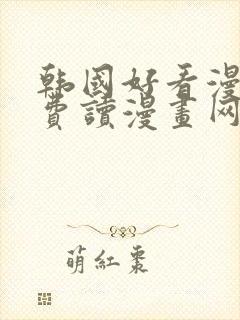 韩國好看漫
費讀漫畫网
萌紅棗